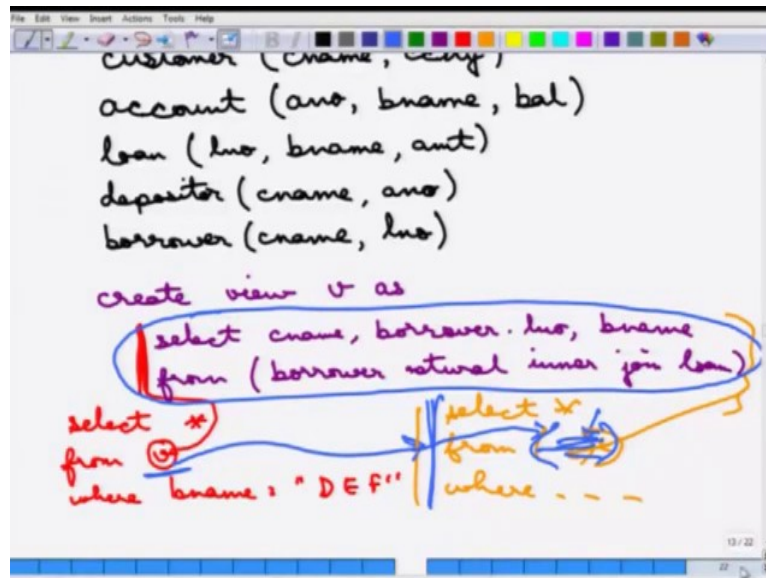 File Edit View Insert Actions Tools Help
customer (cname, ccity)
account (ano, bname, bal)
loan (lno, bname, amt)
depositor (cname, ano)
borrower (cname, lno)
create view v as
select cname, borrower.lno, bname
from (borrower natural inner join loan)
select *
from v
where bname = "DEF"
select *
from (
where - - - -
13 / 22
22